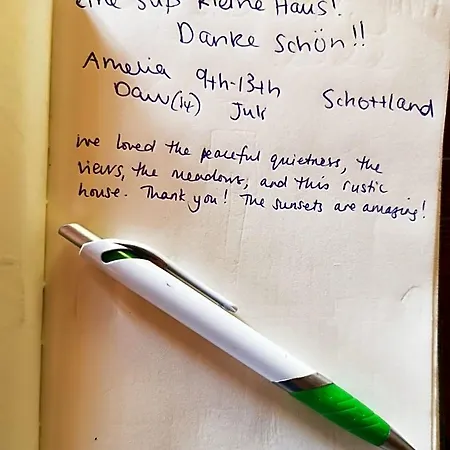 eine süß kleine Haus!
Danke schön!!
Amelia 9th-13th Schottland
(14) Juli
we loved the peaceful quietness, the
views, the meadows, and this rustic
house. Thank you! The sunsets are amazing!